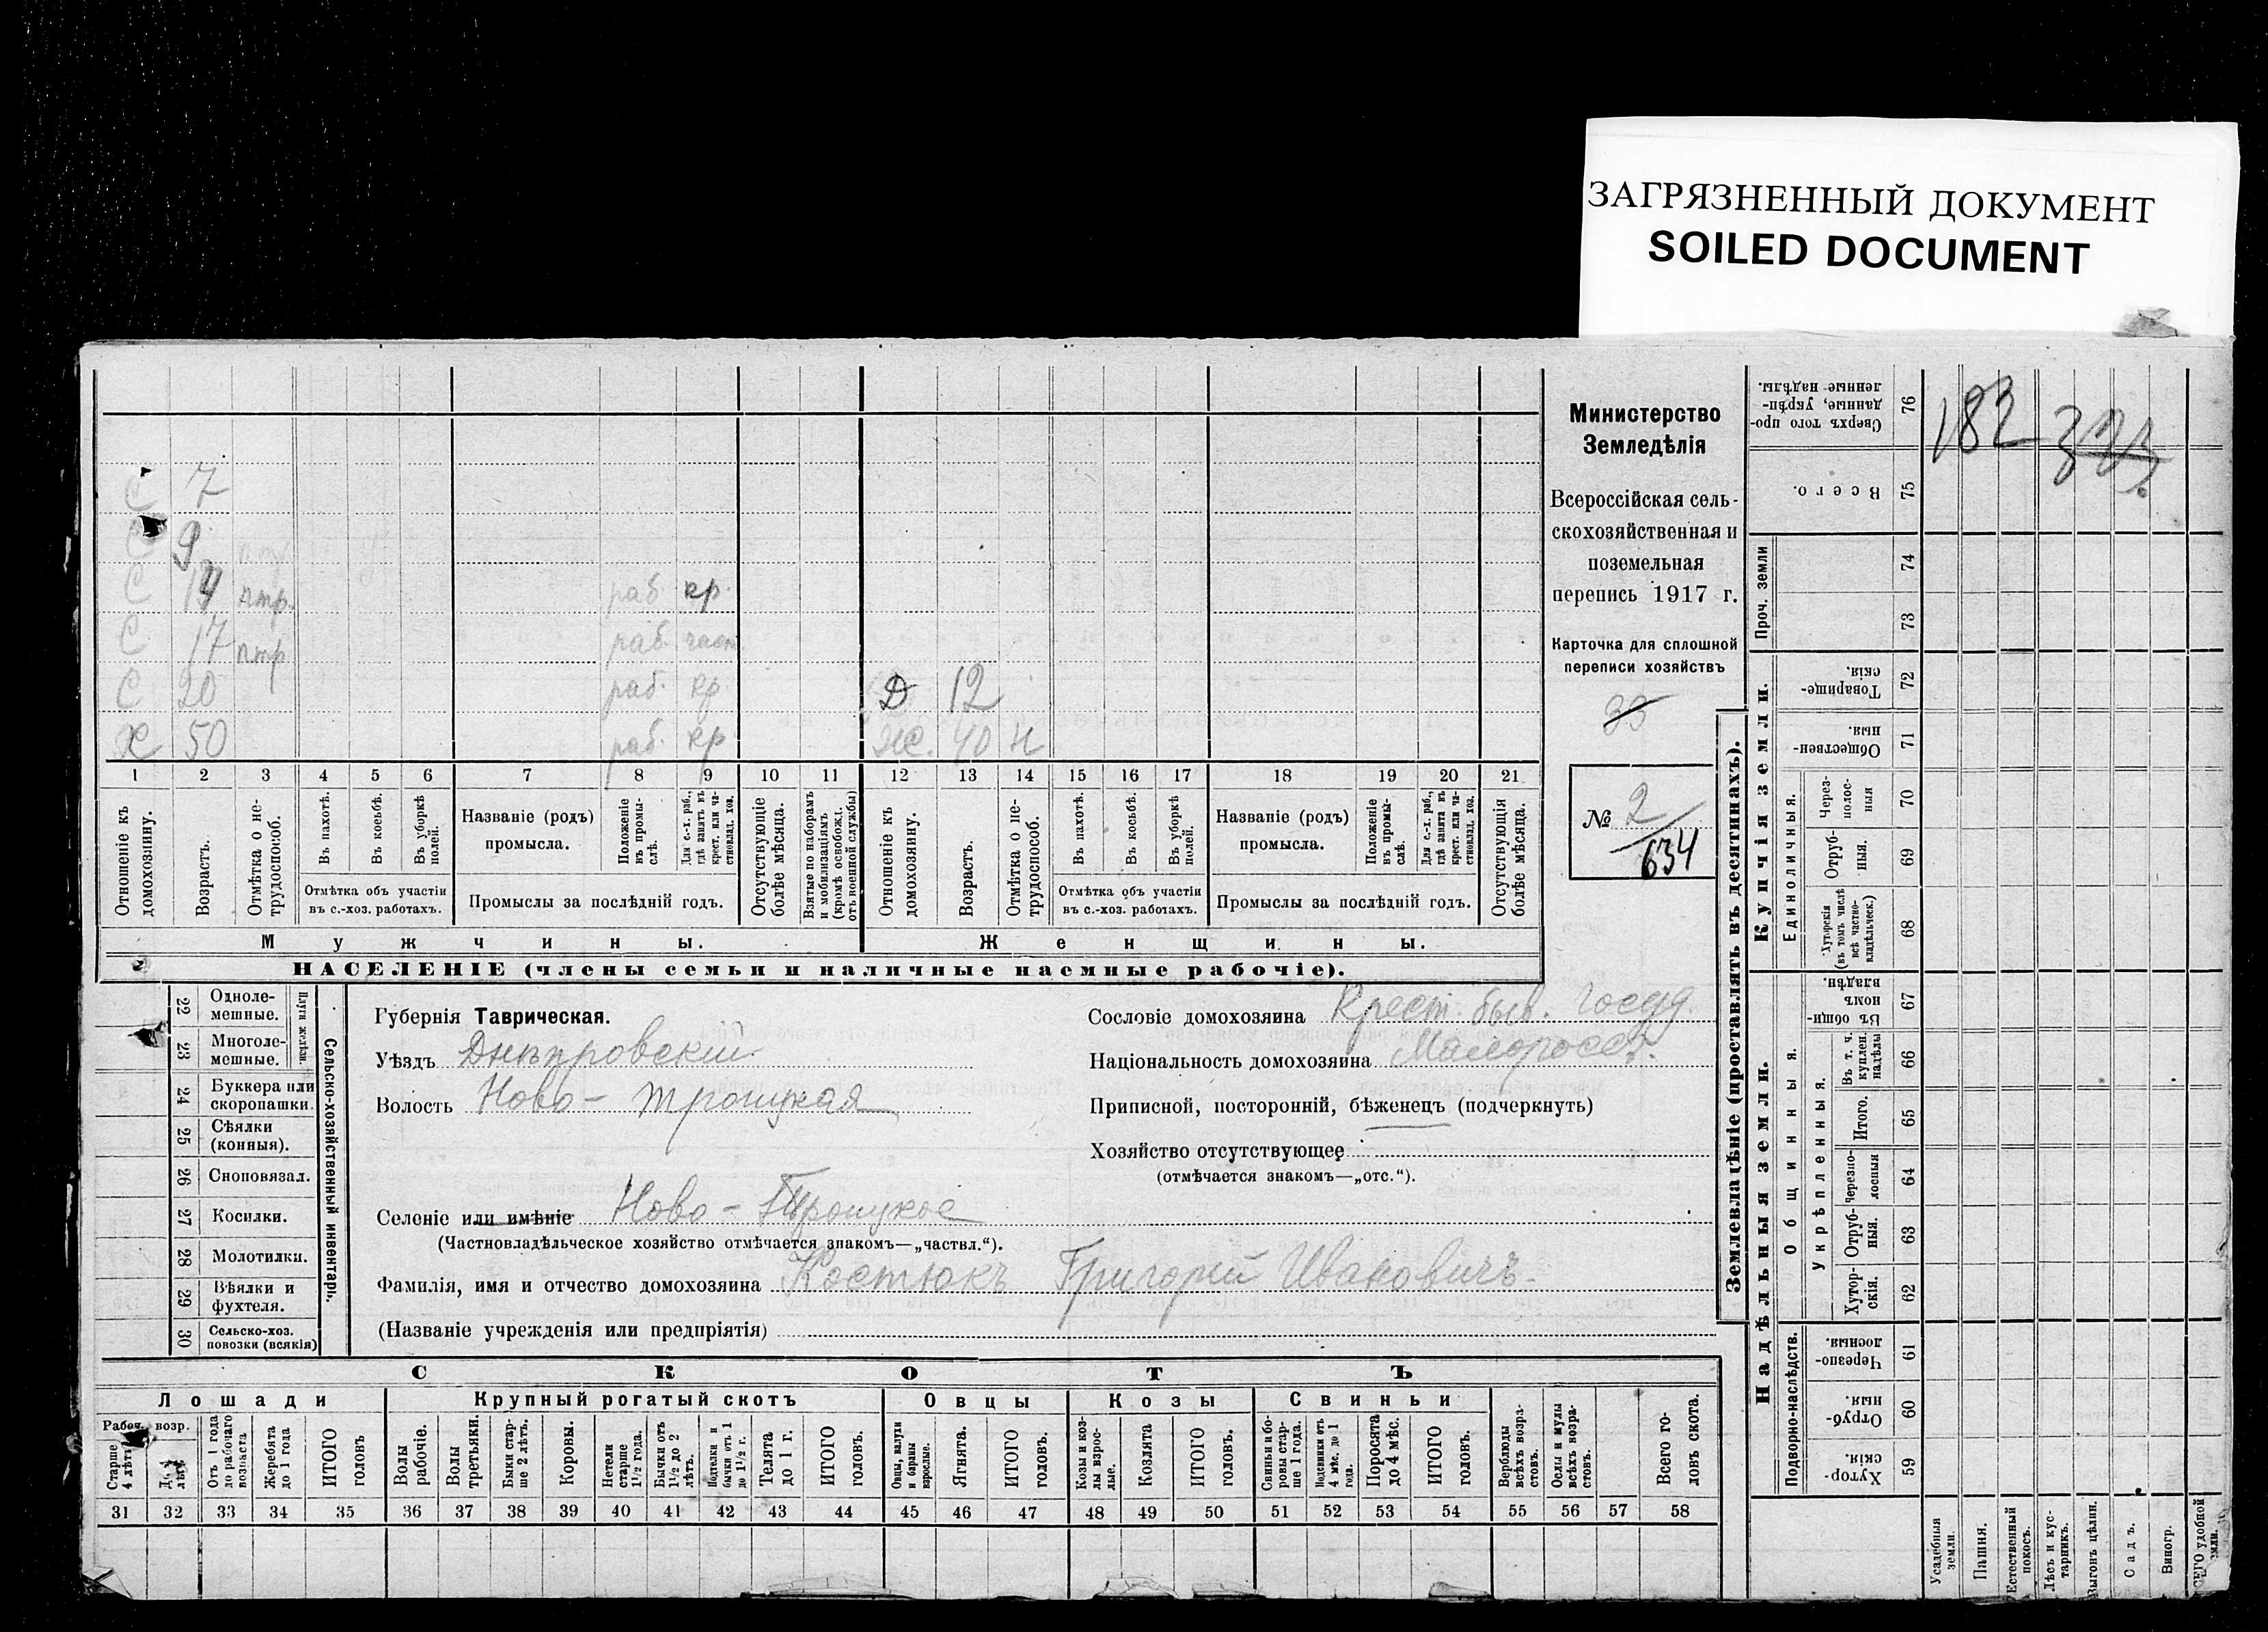 ЗАГРЯЗНЕННЫЙ ДОКУМЕНТ
SOILED DOCUMENT
С 7
С 9
С 14 птр. раб. кр.
С 17 птр раб. част.
С 20 раб. кр Д 12
Х 50 раб. кр Ж. 40 Н
1 2 3 4 5 6 7 8 9 10 11 12 13 14 15 16 17 18 19 20 21
Отношеніе къ домохозяину.
Возрастъ.
Отмѣтка о не-трудоспособ.
Въ пахотѣ.
Въ косьбѣ.
Въ уборкѣ полей.
Отмѣтка объ участіи въ с.-хоз. работахъ.
Названіе (родъ) промысла.
Положеніе въ промы-слѣ.
Для с.-х. раб., гдѣ занятъ въ крест. или ча-стновлад. хоз.
Промыслы за послѣдній годъ.
Отсутствующіе болѣе мѣсяца.
Взятые по наборамъ и мобилизаціямъ (кромѣ освобожд. отъ военной службы)
Отношеніе къ домохозяину.
Возрастъ.
Отмѣтка о не-трудоспособ.
Въ пахотѣ.
Въ косьбѣ.
Въ уборкѣ полей.
Отмѣтка объ участіи въ с.-хоз. работахъ.
Названіе (родъ) промысла.
Положеніе въ промы-слѣ.
Для с.-х. раб., гдѣ занята въ крест. или ча-стновлад. хоз.
Промыслы за послѣдній годъ.
Отсутствующія болѣе мѣсяца.
Мужчины.
Женщины.
НАСЕЛЕНІЕ (члены семьи и наличные наемные рабочіе).
Министерство
Земледѣлія
Всероссійская сель-
скохозяйственная и
поземельная
перепись 1917 г.
Карточка для сплошной
переписи хозяйствъ
33
№ 2
634
22 Одноле-мешные.
23 Многоле-мешные.
Плуги желѣзн.
24 Буккера или скоропашки.
25 Сѣялки (конныя).
26 Сноповязал.
27 Косилки.
28 Молотилки.
29 Вѣялки и фухтеля.
30 Сельско-хоз. повозки (всякія)
Сельско-хозяйственный инвентарь.
Губернія Таврическая.
Уѣздъ Днѣпровскій
Волость Ново-Троицкая
Селеніе или имѣніе Ново-Троицкое
(Частновладѣльческое хозяйство отмѣчается знакомъ—„частвл.“).
Фамилія, имя и отчество домохозяина Костюкъ Григорій Ивановичъ.
(Названіе учрежденія или предпріятія)
Сословіе домохозяина Крест. быв. госуд.
Національность домохозяина Малоросс.
Приписной, посторонній, бѣженецъ (подчеркнуть)
Хозяйство отсутствующее
(отмѣчается знакомъ—„отс.“).
СКОТЪ
Лошади Крупный рогатый скотъ Овцы Козы Свиньи
Рабоч. возр.
Старше 4 лѣтъ
До 4 лѣтъ
Отъ 1 года до рабочаго возраста
Жеребята до 1 года
ИТОГО головъ
Волы рабочіе.
Волы третьяки.
Быки стар-ше 2 лѣтъ.
Коровы.
Нетели старше 1½ года.
Бычки отъ 1½ до 2 лѣтъ.
бычки отъ 1 до 1½ г.
Телята до 1 г.
ИТОГО головъ.
Овцы, валухи и бараны взрослые.
Ягнята.
ИТОГО головъ.
Козы и коз-лы взрос-лые.
Козлята
ИТОГО головъ.
Свиньи и бо-ровы стар-ше 1 года.
Подсвинки отъ 4 мѣс. до 1 года.
Поросята до 4 мѣс.
ИТОГО головъ.
Верблюды всѣхъ возра-стовъ.
Ослы и мулы всѣхъ возра-стовъ.
Всего го-ловъ скота.
31 32 33 34 35 36 37 38 39 40 41 42 43 44 45 46 47 48 49 50 51 52 53 54 55 56 57 58
Землевладѣніе (проставлять въ десятинахъ).
Купчія земли.
Надѣльныя земли.
Сверхъ того про-данные, укрѣп-ленные надѣлы. 76
182
Всего. 75
Проч. земли
74
73
Товарище-скія. 72
Обществен-ныя. 71
Единоличныя.
Через-полос-ныя 70
Отруб-ныя. 69
Хуторскія (въ томъ числѣ всѣ частно-владѣльческ.) 68
Общинныя.
Въ общи-номъ владѣн. 67
Укрѣпленныя.
Въ т. ч. куплен. надѣлы 66
Итого. 65
Черезпо-лосныя 64
Отруб-ныя. 63
Хутор-скія. 62
Подворно-наслѣдств.
Черезпо-лосныя. 61
Отруб-ныя. 60
Хутор-скія. 59
Усадебныя земли.
Пашня.
Естественный покосъ.
Лѣсъ и кус-тарникъ.
Выгонъ цѣлин.
Садъ.
Виногр.
удобной земли.